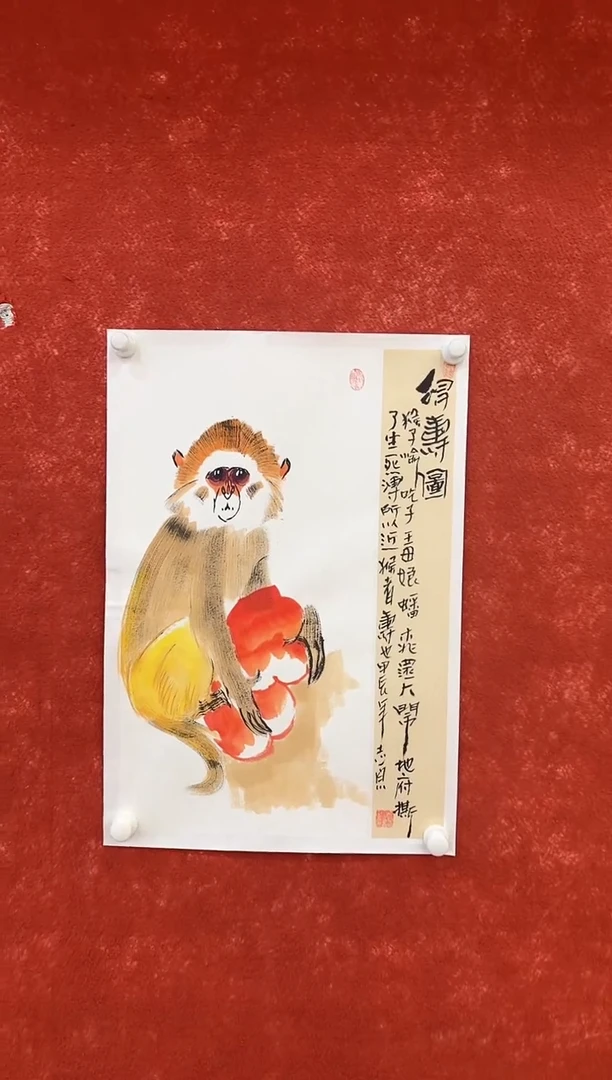 得壽圖
猴子偷吃了王母娘蟠桃還大鬧地府撕
了生死簿所以近猴者壽也甲辰年志